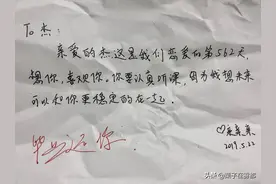 To 杰:
亲爱的杰这是我们恋爱的第562天
想你,喜欢你,你要认真听课,因为我想未来
可以和你更稳定的在一起。
毕业还你
2019.5.22
头条@院子在首都